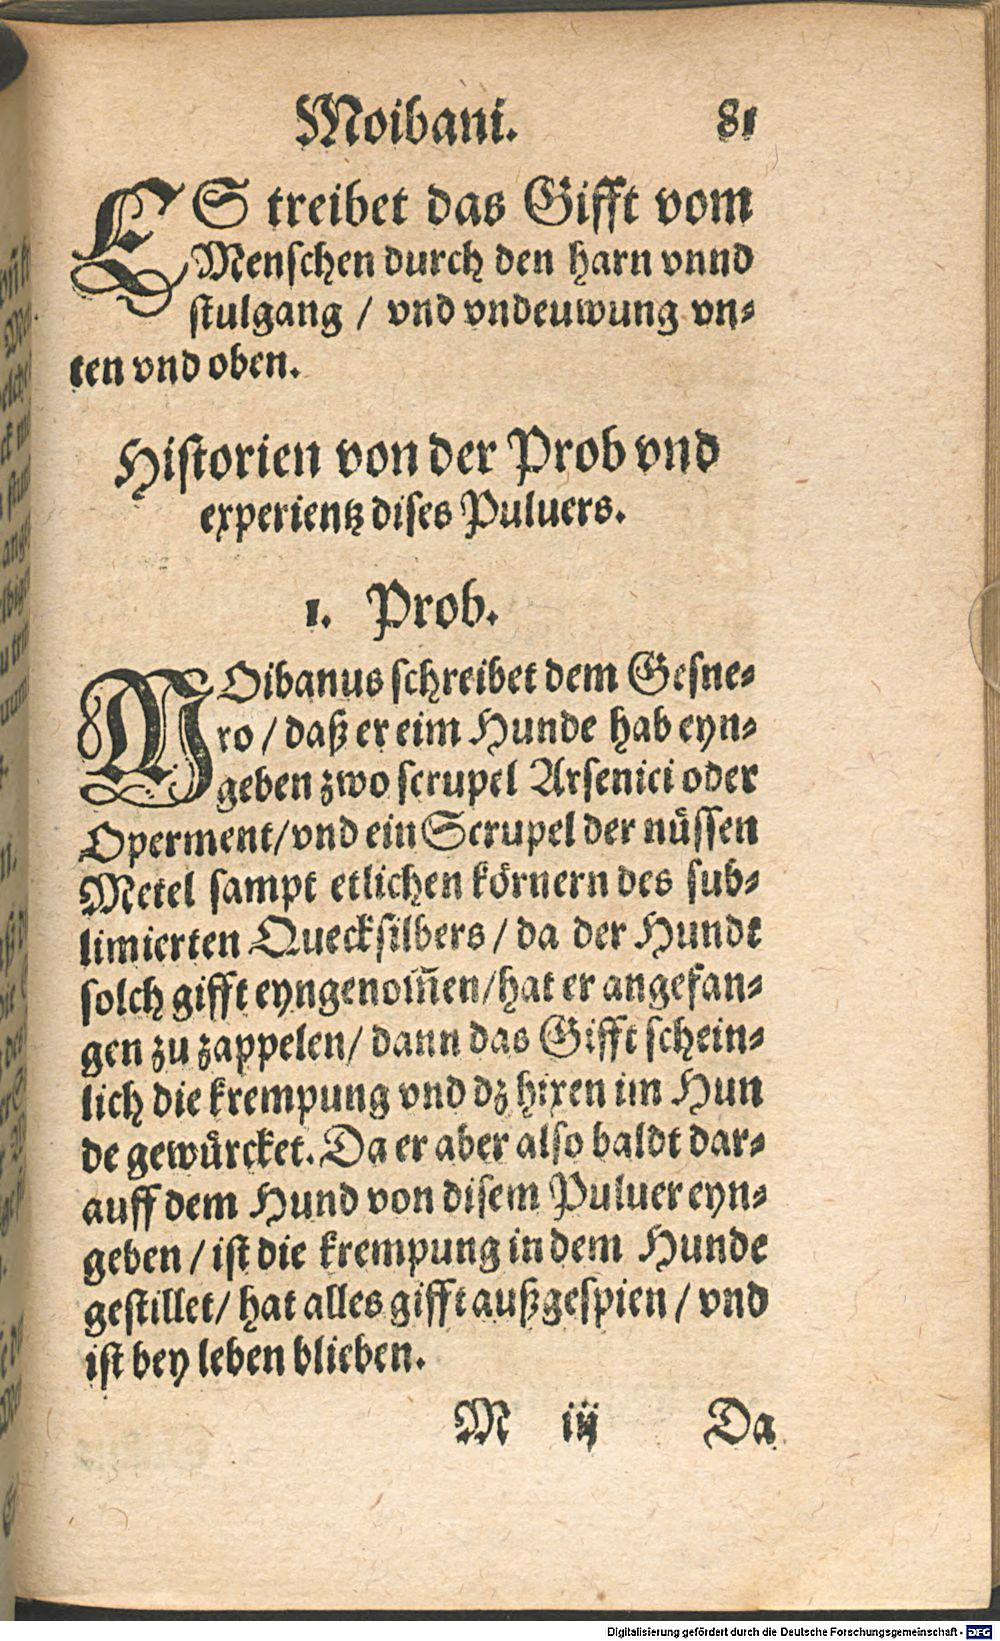 Moibani. 81
ES treibet das Gifft vom
Menschen durch den harn vnnd
stulgang / vnd vndeuwung vn⸗
ten vnd oben.
Historien von der Prob vnd
experientz dises Puluers.
1. Prob.
MOibanus schreibet dem Gesne⸗
ro / daß er eim Hunde hab eyn⸗
geben zwo scrupel Arsenici oder
Operment / vnd ein Scrupel der nüssen
Metel sampt etlichen körnern des sub⸗
limierten Quecksilbers / da der Hundt
solch gifft eyngenom̄en / hat er angefan⸗
gen zu zappelen / dann das Gifft schein⸗
lich die krempung vnd dz hixen im Hun
de gewürcket. Da er aber also baldt dar⸗
auff dem Hund von disem Puluer eyn⸗
geben / ist die krempung in dem Hunde
gestillet / hat alles gifft außgespien / vnd
ist bey leben blieben.
M iij Da
Digitalisierung gefördert durch die Deutsche Forschungsgemeinschaft - DFG